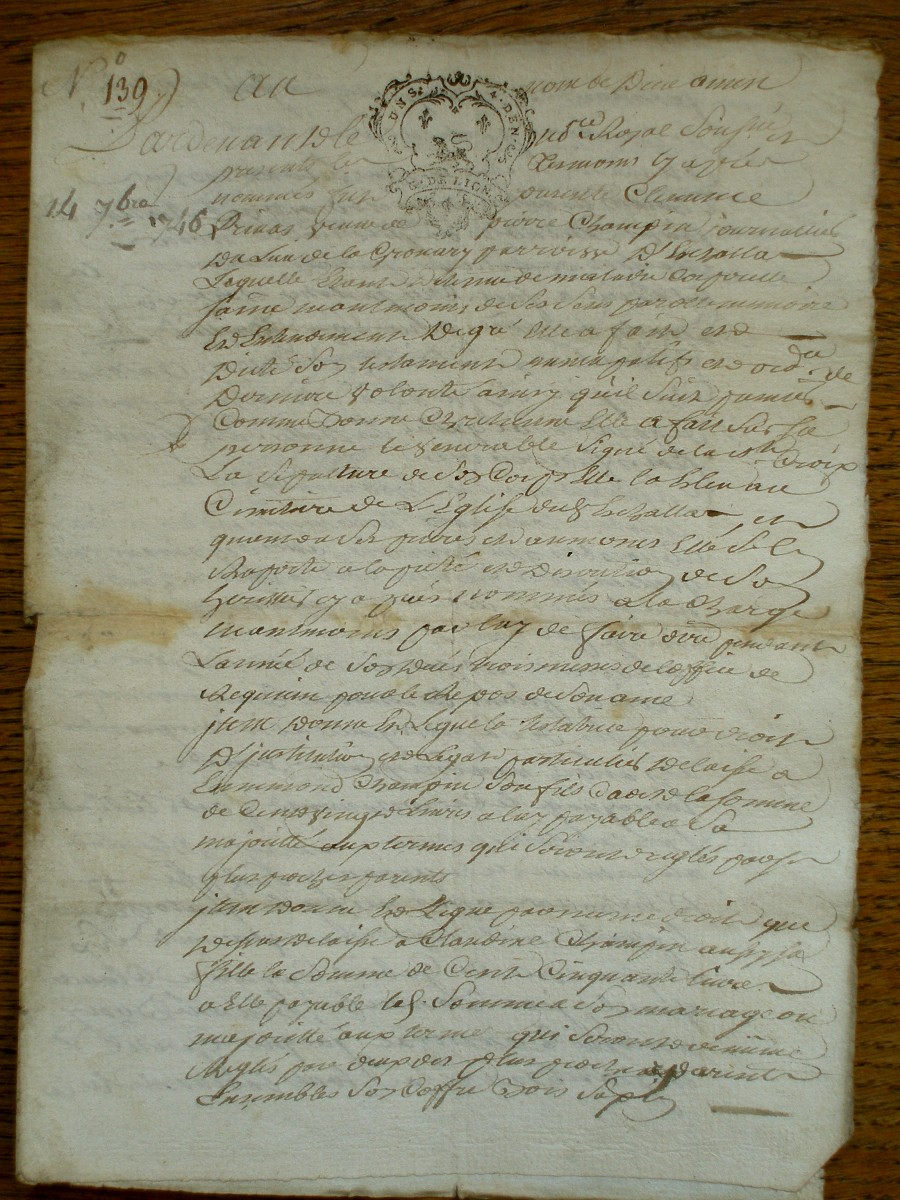 N.° 139
au nom de Dieu amen
Pardevant le no.re Royal Soussig.é et
presents les temoins cy après
nommés fut presente Clemence
14 7bre 1746
Privas veuve de pierre Champin journallier
du lieu de la paroisse d'
Laquelle etant detenue de maladie corporelle
saine neantmoins de ses sens parolle memoire
et entendement de gré elle a fait et
dicté son testament nuncupatif et ord.ce de
derniere volonté ainsy qu'il suit premier
comme bonne chretienne elle a fait sur sa
personne le venerable signe de la s.te Croix
La sepulture de son corps elle la eleu au
Cimetiere de L'Eglise dud.
quand a ses prieres et aumones elle s'en
raporte a la pieté et devotion de son
heritier cy après nommés a la charge
neantmoins par luy de faire dire pendant
L'année de son dués trois messes de l'office de
Requiem pour le Repos de son ame
item donne et Legue la testatrice pour droit
D'institution et Legat particulier delaisse a
Champin son fils cadet la somme
de Cent vingt Livres a luy payable a sa
majorité aux termes qui seront reglés par ses
plus proches parents
item donne et Legue par meme droit que
dessus delaisse a Claudine Champin aussy sa
fille la somme de Cent Cinquante Livres
a Elle payable lad. Somme a son mariage ou
majorité aux terme qui seront de même
Reglés par deux des plus proches parents
Ensembles son Coffre bois sapin
UNS. 4. DEN.ERS
G. DE LION